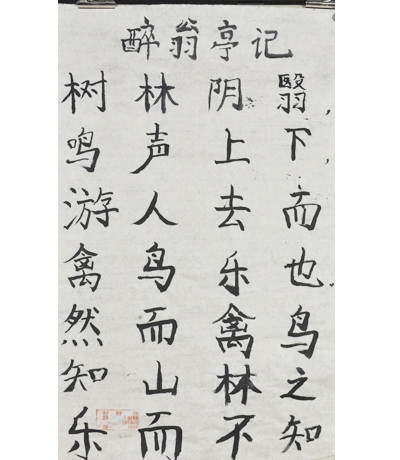 醉翁亭记
树林阴翳,
鸣声上下,
游人去而
禽鸟乐也
然而禽鸟
知山林之
乐而不知